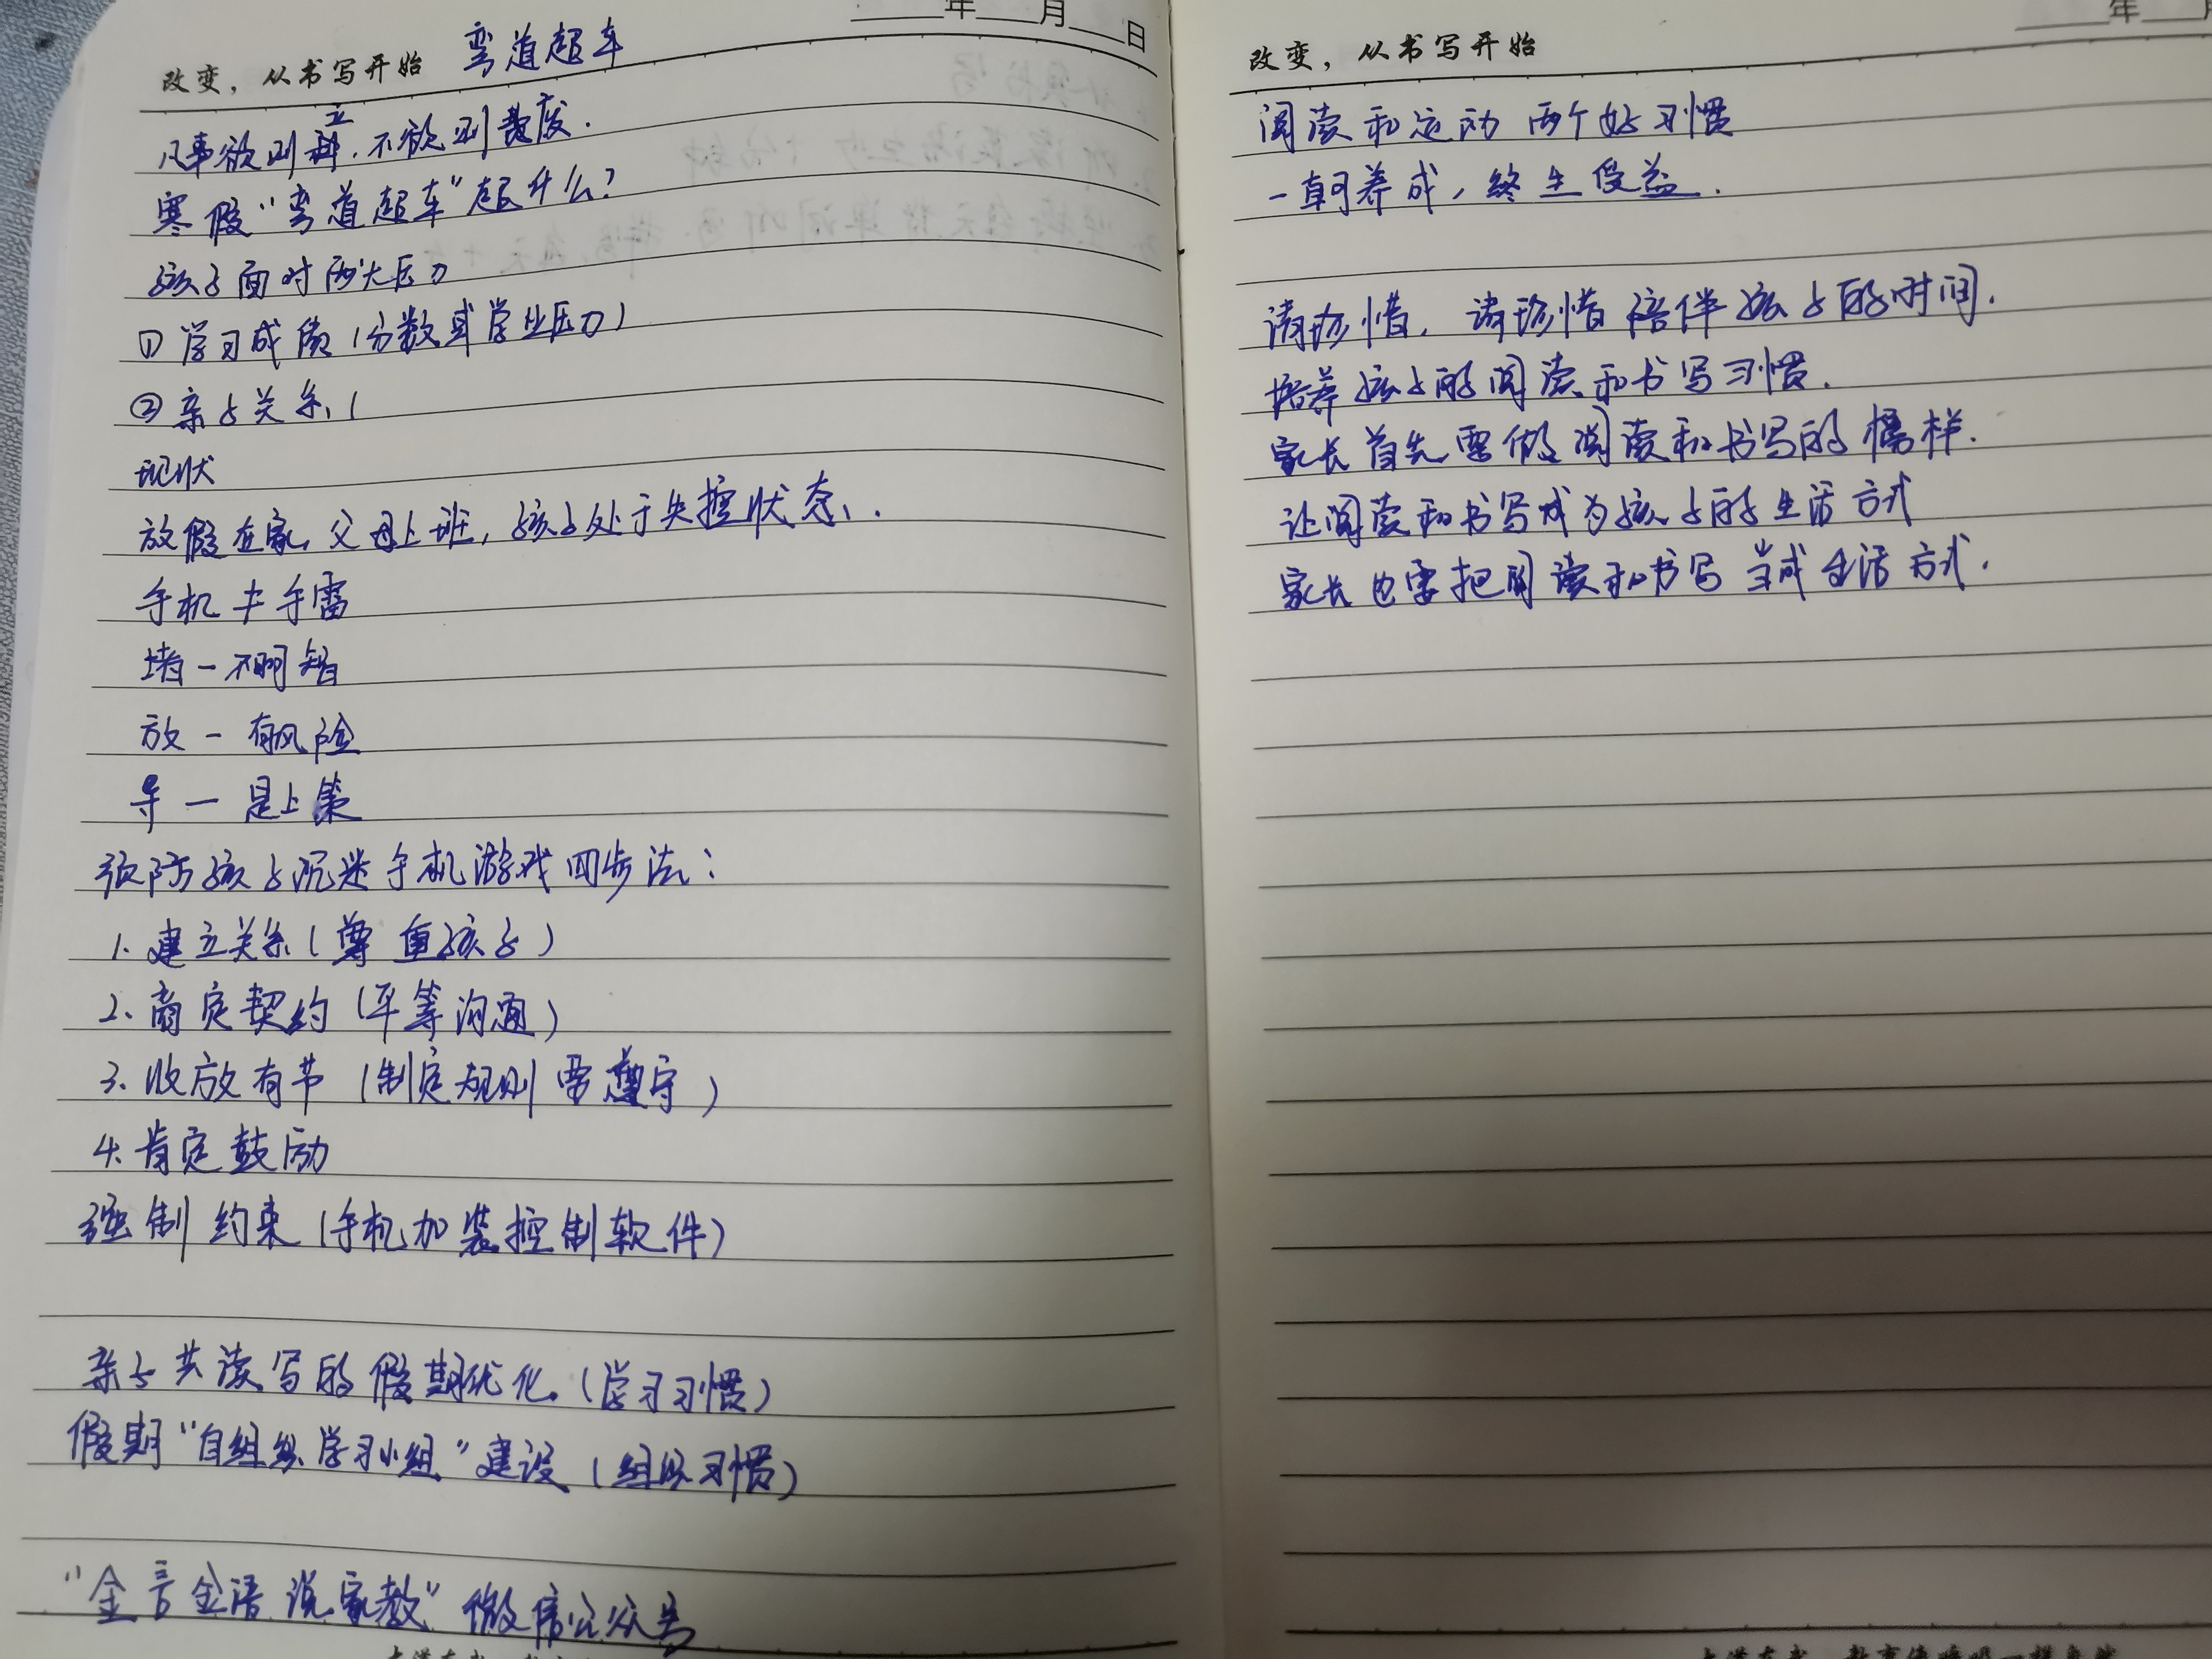 年 月 日
改变，从书写开始 弯道超车
凡事欲则立，不欲则废．
寒假“弯道超车”超什么？
孩子面对两大压力
① 学习成质（分数或学业压力）
② 亲子关系（
现状
放假在家，父母上班，孩子处于失控状态．
手机≠手雷
堵—不明智
放—有风险
导—是上策
预防孩子沉迷手机游戏四步法：
1、建立关系（尊重孩子）
2、商定契约（平等沟通）
3、收放有节（制定规则需遵守）
4、肯定鼓励
强制约束（手机加装控制软件）
亲子共读写的假期优化．（学习习惯）
假期“自组织学习小组”建设（组织习惯）
“金言金语说家教”微信公众号
年
改变，从书写开始
阅读和运动 两个好习惯
一朝养成，终生受益．
请珍惜，请珍惜陪伴孩子的时间．
培养孩子的阅读和书写习惯．
家长首先要做阅读和书写的榜样．
让阅读和书写成为孩子的生活方式
家长也需把阅读和书写当成生活方式．